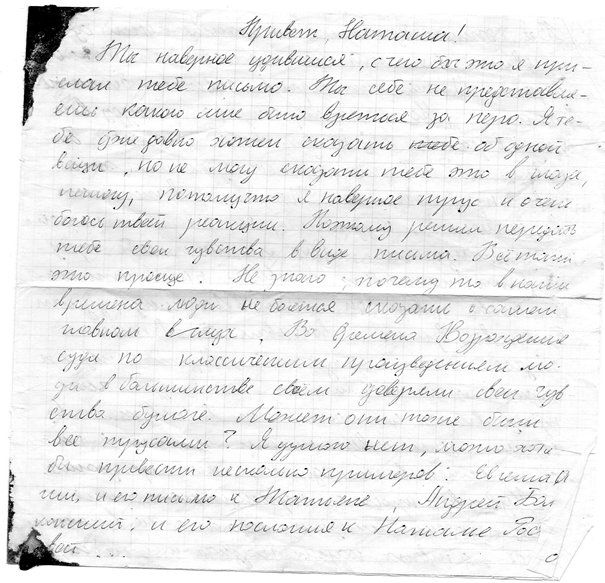 Привет, Наташа!
Ты наверное удивишься, с чего бы это я при-
слал тебе письмо. Ты себе не представля-
ешь какого мне было взяться за перо. Я те-
бе уже давно хотел сказать тебе об одной
вещи, но не могу сказать тебе это в глаза,
потому, потомучто я наверное трус и очень
боюсь твоей реакции. Поэтому решил передать
тебе свои чувства в виде письма. Всё таки
это проще. Не знаю, почему то в наши
времена люди не боятся сказать о самом
главном в глаза. Во времена Возрождения
судя по классическим произведениям лю-
ди в большинстве своём доверяли свои чув
ства бумаге. Может они тоже были
все трусами? Я думаю нет, можно хотя
бы привести несколько примеров: Евгений О
гин, и его письмо к Татьяне, Андрей Бол
конский, и его послания к Наташе Рос
вой...